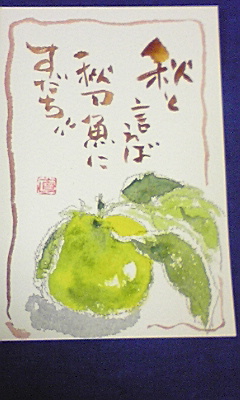 秋と
言えば
秋刀魚に
すだち〃